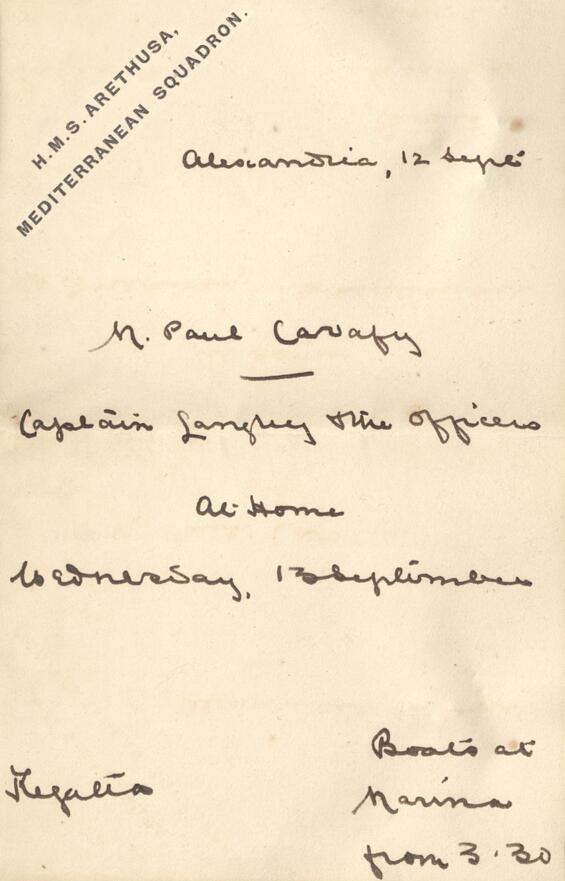 H.M.S. ARETHUSA,
MEDITERRANEAN SQUADRON.
Alexandria, 12 Sept
M. Paul Cavafy
Captain Langley & the officers
At Home
Wednesday, 13 September
Regatta
Boats at
Marina
from 3.30